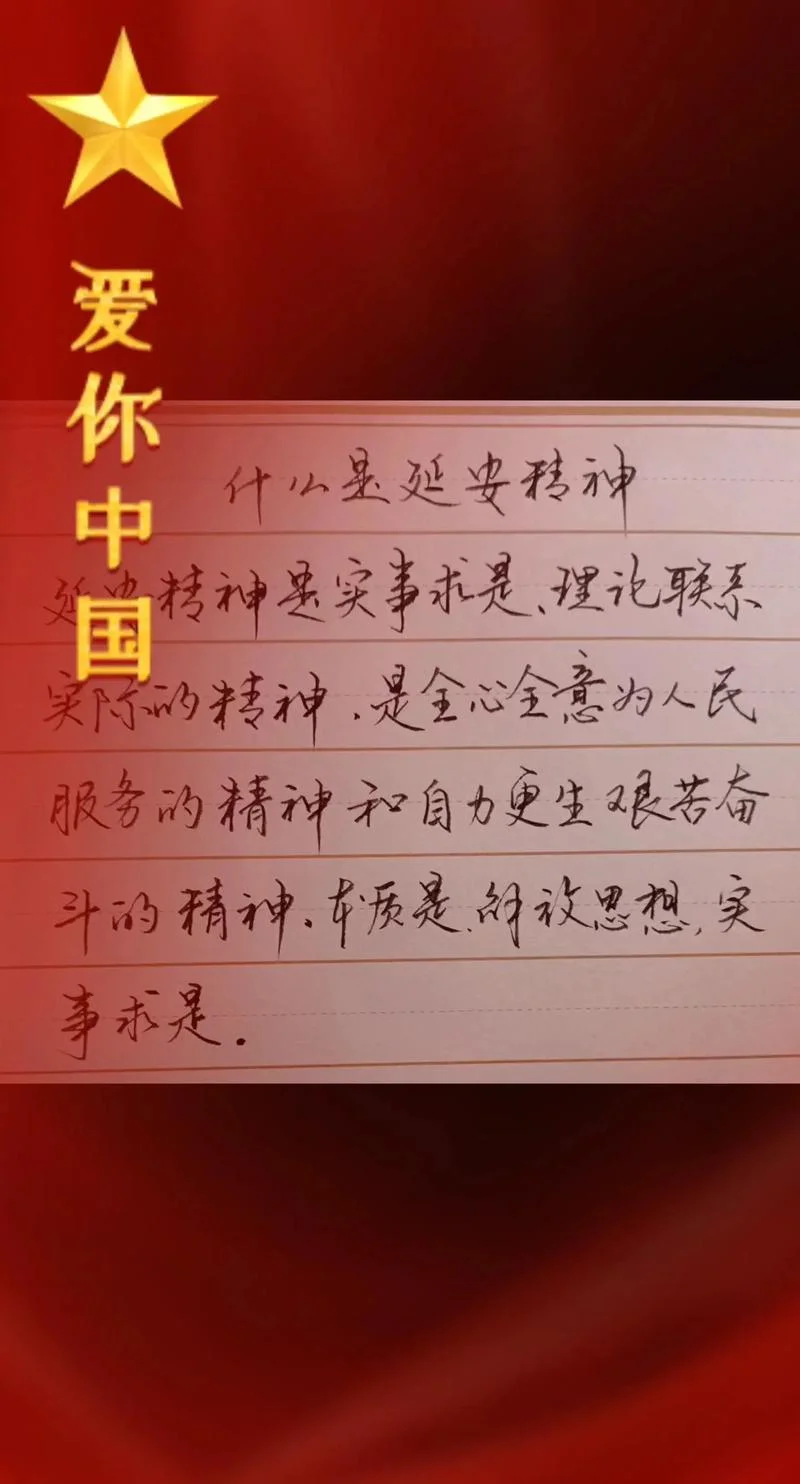 爱你中国
什么是延安精神
延安精神是实事求是、理论联系
实际的精神、是全心全意为人民
服务的精神和自力更生艰苦奋
斗的精神。本质是、解放思想,实
事求是.